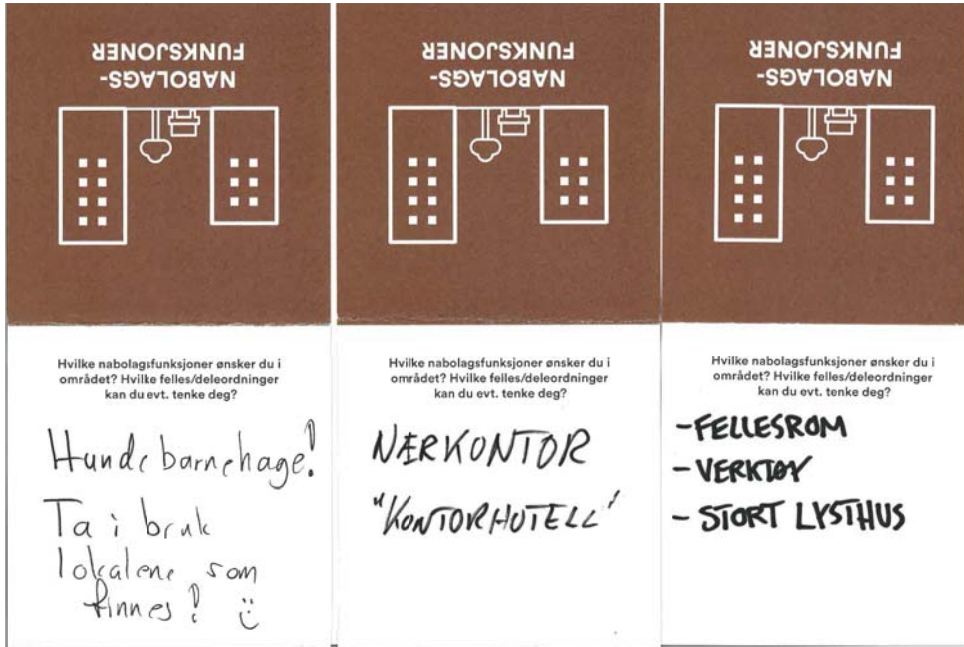 NABOLAGS-
FUNKSJONER
Hvilke nabolagsfunksjoner ønsker du i
området? Hvilke felles/deleordninger
kan du evt. tenke deg?
Hundebarnehage!
Ta i bruk
lokalene som
finnes! :)
NABOLAGS-
FUNKSJONER
Hvilke nabolagsfunksjoner ønsker du i
området? Hvilke felles/deleordninger
kan du evt. tenke deg?
NÆRKONTOR
"KONTORHOTELL"
NABOLAGS-
FUNKSJONER
Hvilke nabolagsfunksjoner ønsker du i
området? Hvilke felles/deleordninger
kan du evt. tenke deg?
- FELLESROM
- VERKTØY
- STORT LYSTHUS